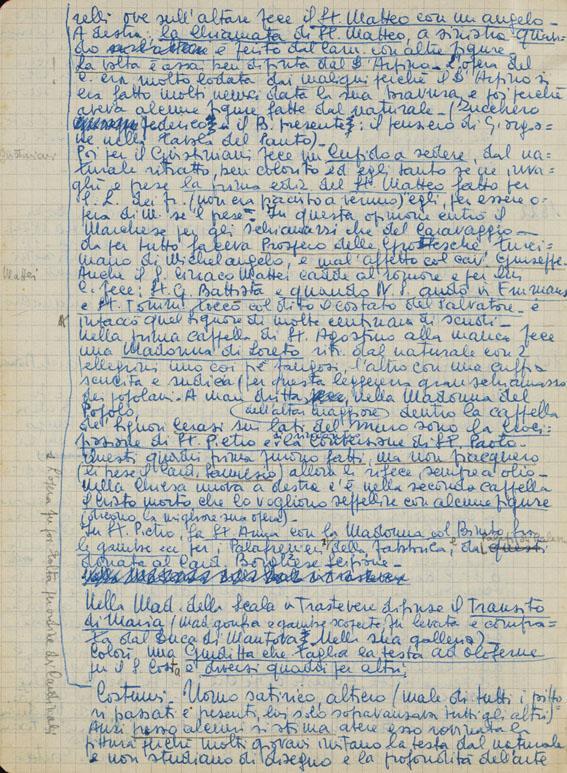 relli ove sull'altare fece il St. Matteo con un angelo -
A destra: la chiamata di St. Matteo, a sinistra quan-
do è ferito dal carn. con altre figure
la volta è assai ben dipinta dal d'Arpino - L'opera del
C. era molto lodata dai maligni perché il d'Arpino si
era fatto molti nemici data la sua bravura e poi perché
aveva alcune figure fatte dal naturale - (Zucchero
Federico e il B. presente: il pensero di Giorgio-
ne nella tavola del Santo) -
Poi per il Giustiniani fece un Cupido a sedere, dal na-
turale ritratto, ben colorito ed egli tanto se ne inva-
ghì e prese la prima ediz. del St. Matteo fatto per
S. L. dei fr. (non era piaciuto a veruno) egli, per essere o-
pera di M. se il prese - In questa opinione entrò il
Marchese per gli schiamazzi che del Caravaggio -
da per tutto faceva Prospero delle Grottesche turci-
mano di Michelangelo e mal'affetto col cav. Giuseppe.
Anche il S. Ciriaco Mattei cadde al romore e per lui
C. fece: St. G. Battista e quando N. S. andò in Emmaus
e St. Tommaso toccò col dito il costato del Salvatore - e
intaccò quel signore di molte centinaia di scudi -
nella prima cappella di St. Agostino alla manca fece
una Madonna di Loreto ritr. dal naturale con 2
pellegrini uno coi piè fangosi, l'altro con una cuffia
sdrucita e sudicia (per questa leggerezza gran schiamazzo
dei popolani. A man dritta, nella Madonna del
Popolo (sull'altar maggiore) dentro la cappella
dei signori Cerasi su lati del muro sono la croci-
fissione di St. Pietro e la conversione di St. Paolo.
Questi quadri prima furono fatti, ma non piacquero
(li prese il Card. Sannesio) allora li rifece sempre a olio -
nella chiesa nuova a destra c'è nella seconda cappella
il Cristo morto, che lo vogliono seppellire con alcune figure
(dicono la migliore sua opera) -
In St. Pietro, la St. Anna con la Madonna col Bimbo fra
le gambe ecc. per i Palafrenieri della fabbrica, da questi
donata al Card. Borghese Scipione -
Nella Mad. della Scala in Trastevere dipinse il Transito
di Maria (Mad. gonfia e gambe scoperte fu levata e compra-
ta dal Duca di Mantova nella sua galleria) -
Colorì una Giuditta che taglia la testa ad Oloferne
per il S. Costa e diversi quadri per altri.
Costumi - Uomo satirico, altiero (male di tutti i pitto-
ri passati e presenti, lui solo sopravanzava tutti gli altri)
Anzi presso alcuni si stima avere esso rovinata la
pittura perché molti giovani imitano la testa dal naturale
e non studiano di disegno e la profondità dell'arte
Giustiniani
Mattei